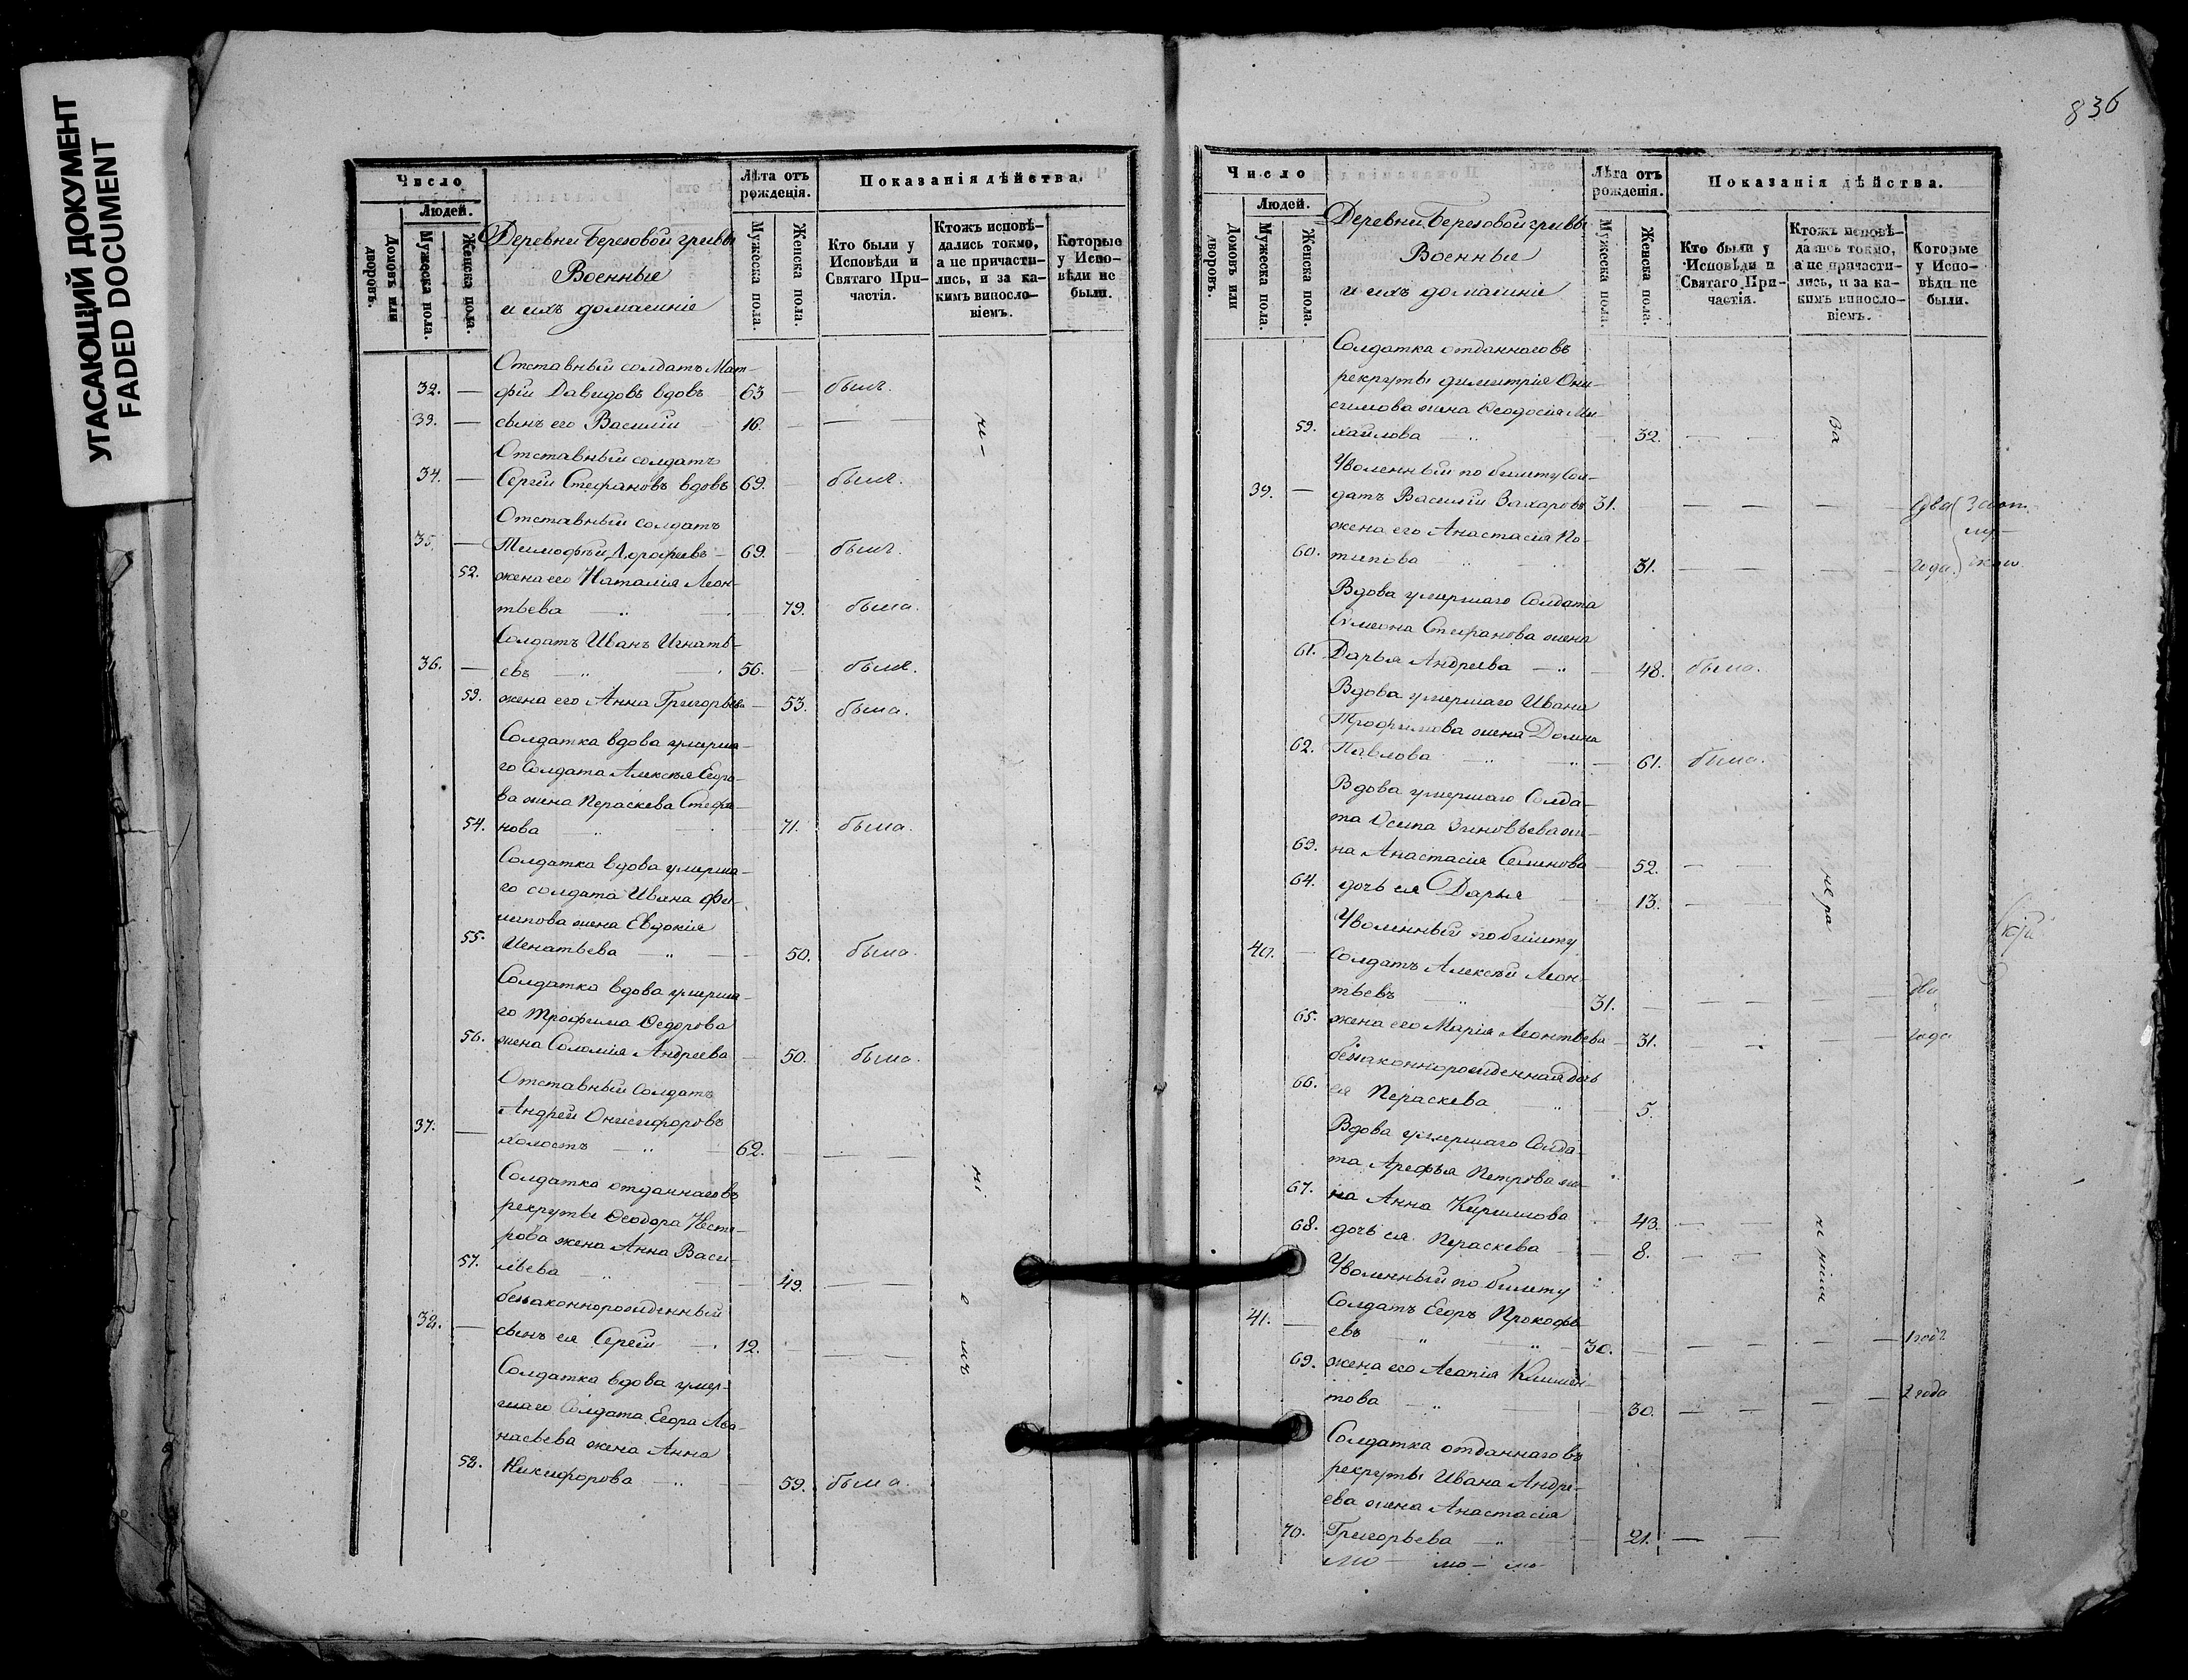 УГАСАЮЩИЙ ДОКУМЕНТ
FADED DOCUMENT
Число
Людей.
Домовъ или дворовъ.
Мужеска пола.
Женска пола.
Деревни Березовой гривы
Военные
и ихъ домашніе
Лѣта отъ рожденія.
Мужеска пола.
Женска пола.
Показанія дѣйства.
Кто были у Исповѣди и Святаго Причастія.
Ктожъ исповѣдались токмо, а не причастились, и за какимъ винословіемъ.
Которые у Исповѣди не были.
Отставный солдатъ Мат-
32. — фій Давидовъ вдовъ 63 — былъ.
33. — сынъ его Василій 16. — — —
Отставный солдатъ
34. — Сергій Стефановъ вдовъ 69. — былъ.
Отставный солдатъ
35. — Тимофѣй Дорофеевъ — 69. — былъ.
52. жена его Наталія Леон-
тьева — 79. была.
Солдатъ Иванъ Игнать-
36. — евъ — 56. — былъ.
53. жена его Анна Григорьева — 53. была.
Солдатка вдова умерша-
го Солдата Алексѣя Егоро-
ва жена Пераскева Стефа-
54. нова — 71. была.
Солдатка вдова умерша-
го солдата Ивана Фи-
липова жена Евдокія
55. Игнатьева — 50. была.
Солдатка вдова умерша-
го Трофима Ѳедорова
56. жена Соломія Андреева — 50. была.
Отставный Солдатъ
Андрей Онисифоровъ
37. — холостъ — 62. — — —
Солдатка отданнаго въ
рекруты Ѳеодора Несте-
рова жена Анна Васи-
57. льева — 49. — —
беззаконнорожденный
38. — сынъ ея Сергій — 12. — — —
Солдатка вдова умер-
шаго Солдата Егора Аѳа-
насьева жена Анна
58. Никифорова — 59. была.
836
Число
Людей.
Домовъ или дворовъ.
Мужеска пола.
Женска пола.
Деревни Березовой гривы
Военные
и ихъ домашніе
Лѣта отъ рожденія.
Мужеска пола.
Женска пола.
Показанія дѣйства.
Кто были у Исповѣди и Святаго Причастія.
Ктожъ исповѣдались токмо, а не причастились, и за какимъ винословіемъ.
Которые у Исповѣди не были.
Солдатка отданнаго въ
рекруты Димитрія Они-
симова жена Ѳеодосія Ми-
59. хайлова — 32. — — за
Уволенный по билету Сол-
39. — датъ Василій Захаровъ 31. — — — — — два
жена его Анастасія По-
60. тапова — 31. — — — — года.
Вдова умершаго Солдата
Симеона Стефанова жена
61. Дарья Андреева — 48. была.
Вдова умершаго Ивана
Трофимова жена Домна
62. Павлова — 61. была.
Вдова умершаго Солда-
та Осипа Зиновьева же-
63. на Анастасія Семенова 52. — —
64. дочь ея Дарья 13. — —
Уволенный по билету
40. — Солдатъ Алексѣй Леон-
тьевъ 31. — — — — два
65. жена его Марія Леонтьева — 31. — — — года
беззаконнорожденная дочь
66. ея Пераскева — 5.
Вдова умершаго Солда-
та Арефья Петрова же-
67. на Анна Кирилова 43. — —
68. дочь ея Пераскева — 8. — —
Уволенный по билету
41. — Солдатъ Егоръ Прокофь-
евъ 30. — — — — — 1 годъ
69. жена его Агапія Климен-
това 30. — — — — 2 года
Солдатка отданнаго въ
рекруты Ивана Андре-
ева жена Анастасія
70. Григорьева — 21. — —